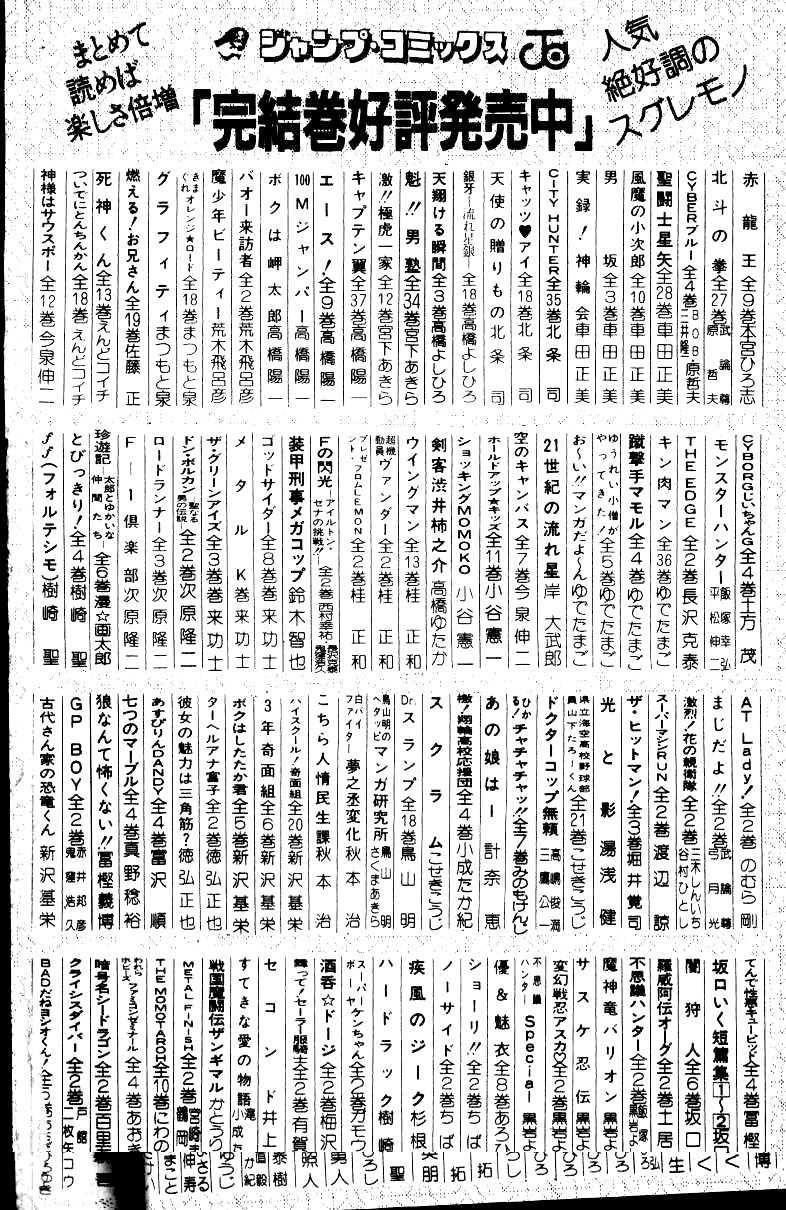 まとめて
読めば
楽しさ倍増
ジャンプ・コミックス
人気
絶好調の
スグレモノ
「完結巻好評発売中」
赤龍王全9巻本宮ひろ志
北斗の拳全27巻武論尊 原哲夫
CYBERブルー全4巻BOB・原哲夫 三井隆一
聖闘士星矢全28巻車田正美
風魔の小次郎全10巻車田正美
男坂全3巻車田正美
実録!神輪会車田正美
CITY HUNTER全35巻北条司
キャッツ♥アイ全18巻北条司
天使の贈りもの北条司
銀牙―流れ星銀―全18巻高橋よしひろ
天翔ける瞬間全3巻高橋よしひろ
魁!!男塾全34巻宮下あきら
激!!極虎一家全12巻宮下あきら
キャプテン翼全37巻高橋陽一
エース!全9巻高橋陽一
100Mジャンパー高橋陽一
ボクは岬太郎高橋陽一
バオー来訪者全2巻荒木飛呂彦
魔少年ビーティー荒木飛呂彦
きまぐれオレンジ★ロード全18巻まつもと泉
グラフィティまつもと泉
燃える!お兄さん全19巻佐藤正
死神くん全13巻えんどコイチ
ついでにとんちんかん全18巻えんどコイチ
神様はサウスポー全12巻今泉伸二
CYBORGじいちゃんG全4巻土方茂
モンスターハンター飯塚幸弘 平松伸二
THE EDGE全2巻長沢克泰
キン肉マン全36巻ゆでたまご
蹴撃手マモル全4巻ゆでたまご
ゆうれい小僧がやってきた!全5巻ゆでたまご
お〜い!!マンガだよ〜んゆでたまご
21世紀の流れ星岸大武郎
空のキャンバス全7巻今泉伸二
ホールドアップ★キッズ全11巻小谷憲一
ショッキングMOMOKO小谷憲一
剣客渋井柿之介高橋ゆたか
ウイングマン全13巻桂正和
超機動員ヴァンダー全2巻桂正和
プレゼント・フロムLEMON全2巻桂正和
Fの閃光―アイルトン・セナの挑戦!!―全2巻西村幸祐・鬼窪浩久
装甲刑事メガコップ鈴木智也
ゴッドサイダー全8巻巻来功士
メタルK巻来功士
ザ・グリーンアイズ全3巻巻来功士
ドン・ボルカン聖なる男の伝説全2巻次原隆二
ロードランナー全3巻次原隆二
F―1倶楽部次原隆二
珍遊記―太郎とゆかいな仲間たち―全6巻漫☆画太郎
とびっきり!全4巻樹崎聖
ff(フォルテシモ)樹崎聖
AT Lady!全2巻のむら剛
まじだよ!!全2巻武論尊 弓月光
激烈!花の親衛隊全2巻三木しんいち 谷村ひとし
スーパーマシンRUN全2巻渡辺諒
ザ・ヒットマン!全3巻堀井覚司
光と影湯浅健
県立海空高校野球部員山下たろーくん全21巻こせきこうじ
ドクターコップ無頼高嶋俊満 三鷹公一
ひかる!チャチャチャッ!!全7巻みのもけんじ
あの娘はー計奈恵
檄!翔輪高校応援団全4巻小成たか紀
スクラムこせきこうじ
Dr.スランプ全18巻鳥山明
鳥山明のヘタッピマンガ研究所鳥山明 さくまあきら
白バイファイター夢之丞変化秋本治
こちら人情民生課秋本治
ハイスクール!奇面組全20巻新沢基栄
3年奇面組全6巻新沢基栄
ボクはしたたか君全5巻新沢基栄
ターヘルアナ富子全2巻徳弘正也
彼女の魅力は三角筋?徳弘正也
あすぴりんDANDY全4巻富沢順
七つのマーブル全4巻真野稔裕
狼なんて怖くない!!冨樫義博
GP BOY全2巻赤井邦彦 鬼窪浩久
古代さん家の恐竜くん新沢基栄
てんで性悪キューピッド全4巻冨樫
坂口いく短篇集1〜2坂口
闇狩人全6巻坂口
羅威阿伝オーグ全2巻土居
不思議ハンター全2巻飯塚 黒岩よ
魔神竜バリオン黒岩よ
サスケ忍伝黒岩よ
変幻戦忍アスカ♡全2巻黒岩よ
不思議ハンターSpecial黒岩よ
優&魅衣全8巻あろひ
ショーリ!!全2巻ちば
ノーサイド全2巻ちば
疾風のジーク杉根
ハードラック樹崎
スーパーケンちゃんボーヤ全2巻ガモウ
酒呑☆ドージ全2巻梅沢
舞って!セーラー服騎士全2巻有賀
セコンド井上
すてきな愛の物語滝 小成た
戦国魔闘伝ザンギマルかどうり
METAL FINISH全2巻宮崎 鶴岡
THE MOMOTAROH全10巻にわの
われらホビーズファミコンゼミナール全4巻あおき
暗号名シードラゴン全2巻百里
クライシスダイバー全2巻戸館 二枚矢コウ
BADだねヨシオくん!
博
く
く
生
弘
ろ
ひろ
ひろ
ひろ
し
拓
拓
朋
聖
ろし
男人
照人
泰樹
直毅
か紀
ゆうじ
伸寿
まこと